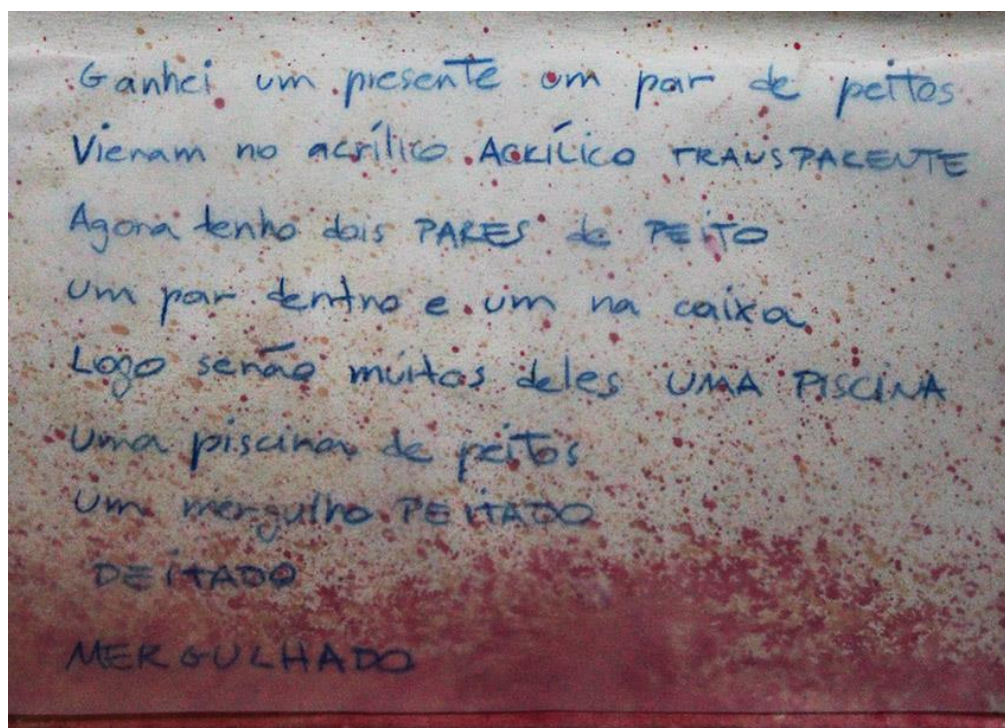 Ganhei um presente um par de peitos
Vieram no acrílico ACRÍLICO TRANSPARENTE
Agora tenho dois PARES de PEITO
Um par dentro e um na caixa
Logo serão muitos deles UMA PISCINA
Uma piscina de peitos
Um mergulho PEITADO
DEITADO
MERGULHADO